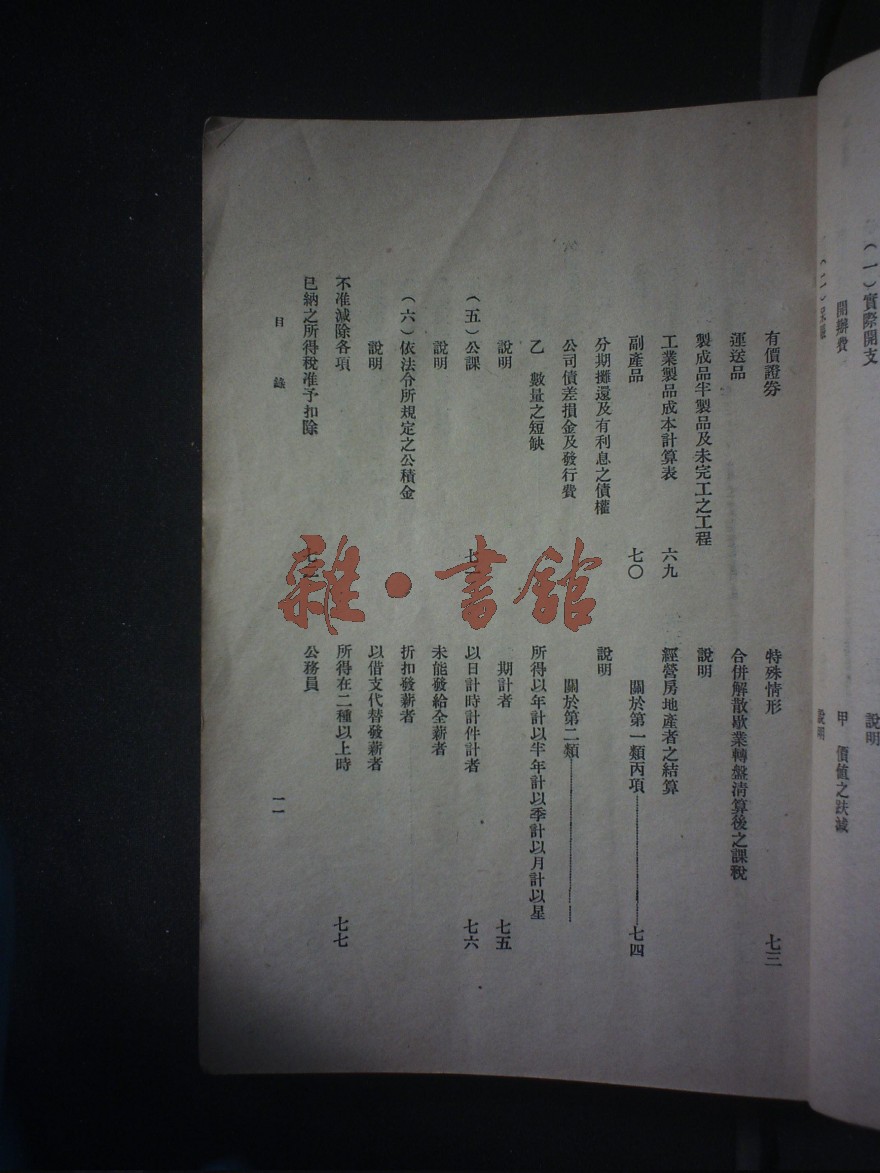 （一）實際開支
開辦費
說明
甲　價值之跌減
說明
有價證券
運送品
製成品半製品及未完工之工程
工業製品成本計算表　六九
副產品　七〇
分期攤還及有利息之債權
公司債差損金及發行費
乙　數量之短缺
說明
（五）公課
說明
（六）依法令所規定之公積金
說明
不准減除各項
已納之所得稅准予扣除
特殊情形　七三
合併解散歇業轉盤清算後之課稅
說明
經營房地產者之結算
關於第一類丙項　七四
說明
關於第二類
所得以年計以半年計以季計以月計以星
期計者　七五
以日計時計件計者　七六
未能發給全薪者
折扣發薪者
以借支代替發薪者
所得在二種以上時　七七
公務員
目錄
一一
雜・書館